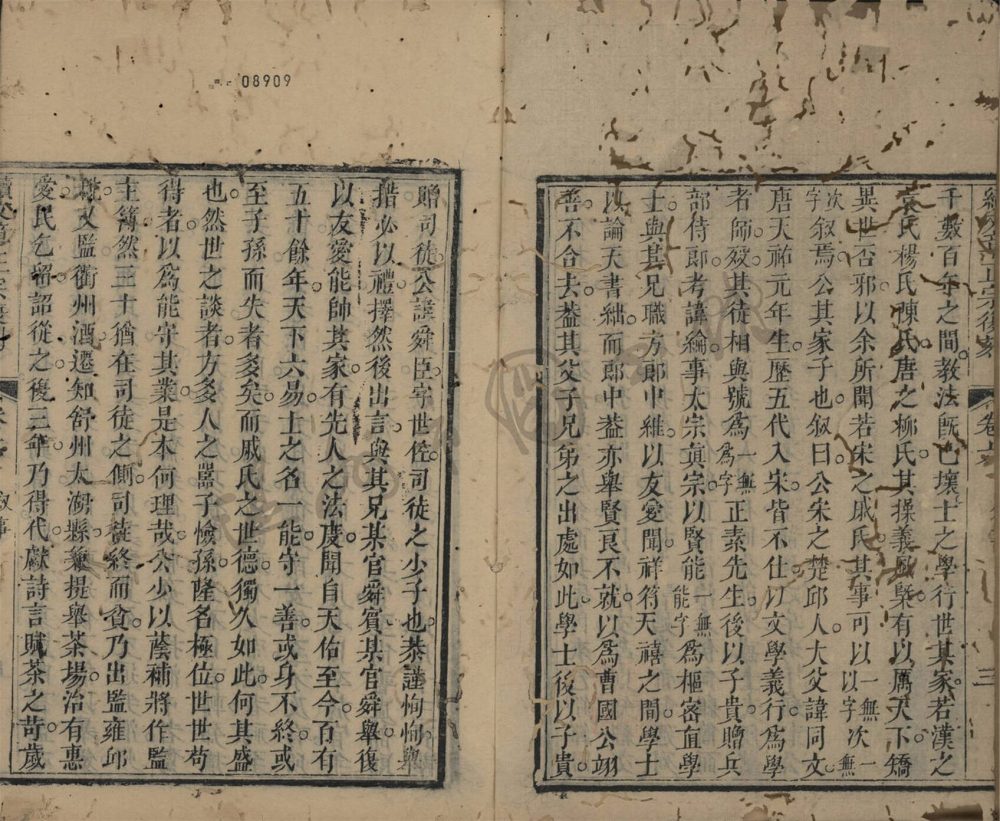 08909
千數百年之間教法既已壞士之學行世其家若漢之
袁氏楊氏陳氏唐之柳氏其操義風槩有以厲天下矯
異世否邪以余所聞若宋之戚氏其事可以一無以字次一無
次字敘焉公其家子也敘曰公宋之楚邱人大父諱同文
唐天祐元年生歷五代入宋皆不仕以文學義行為學
者師歿其徒相與號為一無為字正素先生後以子貴贈兵
部侍郎考諱綸事太宗真宗以賢能一無能字為樞密直學
士與其兄職方郎中維以友愛聞祥符天禧之間學士
以論天書絀而郎中葢亦舉賢良不就以為曹國公翊
善不合去葢其父子兄弟之出處如此學士後以子貴
贈司徒公諱舜臣字世佐司徒之少子也恭謹恂恂舉
措必以禮擇然後出言與其兄某官舜賓某官舜舉復
以友愛能帥其家有先人之法度聞自天佑至今百有
五十餘年天下六易士之名一能守一善或身不終或
至子孫而失者多矣而戚氏之世德獨久如此何其盛
也然世之談者方多人之嚚子憸孫隆名極位世世苟
得者以為能守其業是本何理哉公少以蔭補將作監
主簿然三十猶在司徒之側司徒終而貧乃出監雍邱
稅又監衢州酒遷知舒州太湖縣兼提舉茶場治有惠
愛民乞留詔從之復三年乃得代獻詩言賦茶之苛歲